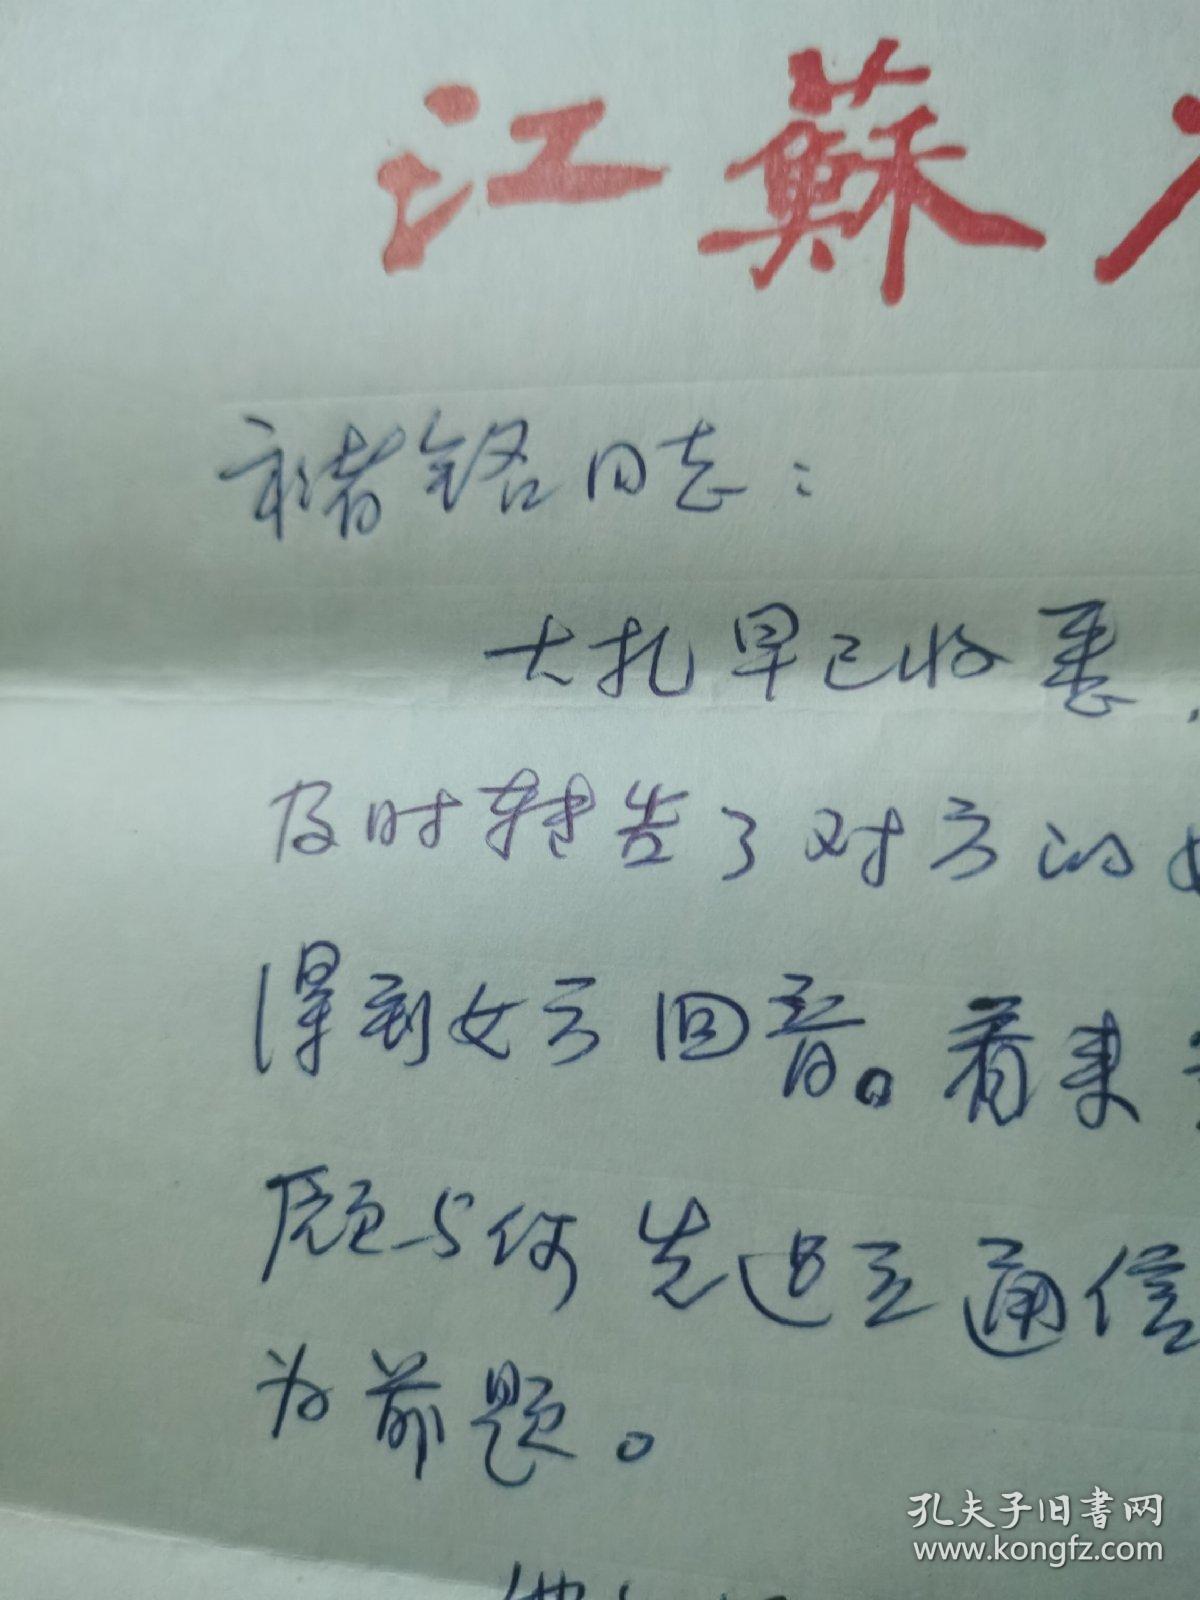 江蘇
褚铭同志：
大扎早已收悉，
及时转告了对方的
得到女方回音。看来
愿与你先建立通信
为前题。
孔夫子旧书网
www.kongfz.com